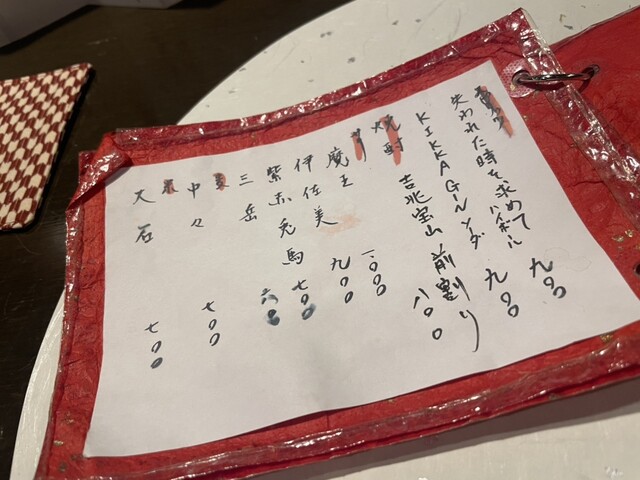 失われた時を求めて ハイボール 九〇〇
KIKKA GIN ソーダ 九〇〇
焼酎
吉兆宝山前割り 八〇〇
芋
魔王 一、〇〇〇
伊佐美 九〇〇
紫赤兎馬 七〇〇
三岳 六〇〇
麦
中々 七〇〇
米
大石 七〇〇